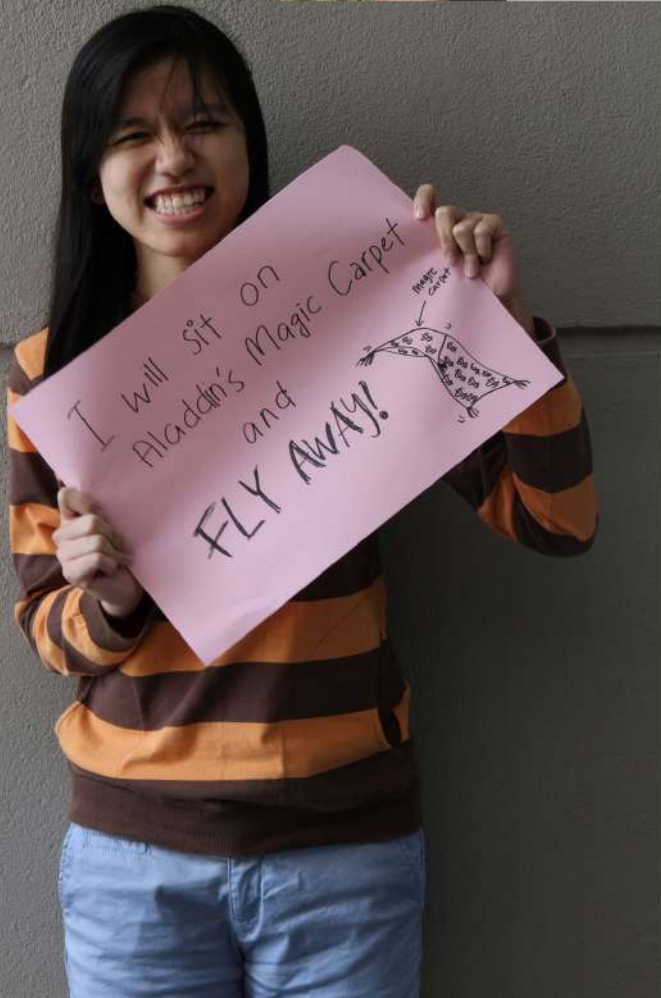 I will sit on
Aladdin's Magic Carpet
and
FLY AWAY!
magic
carpet